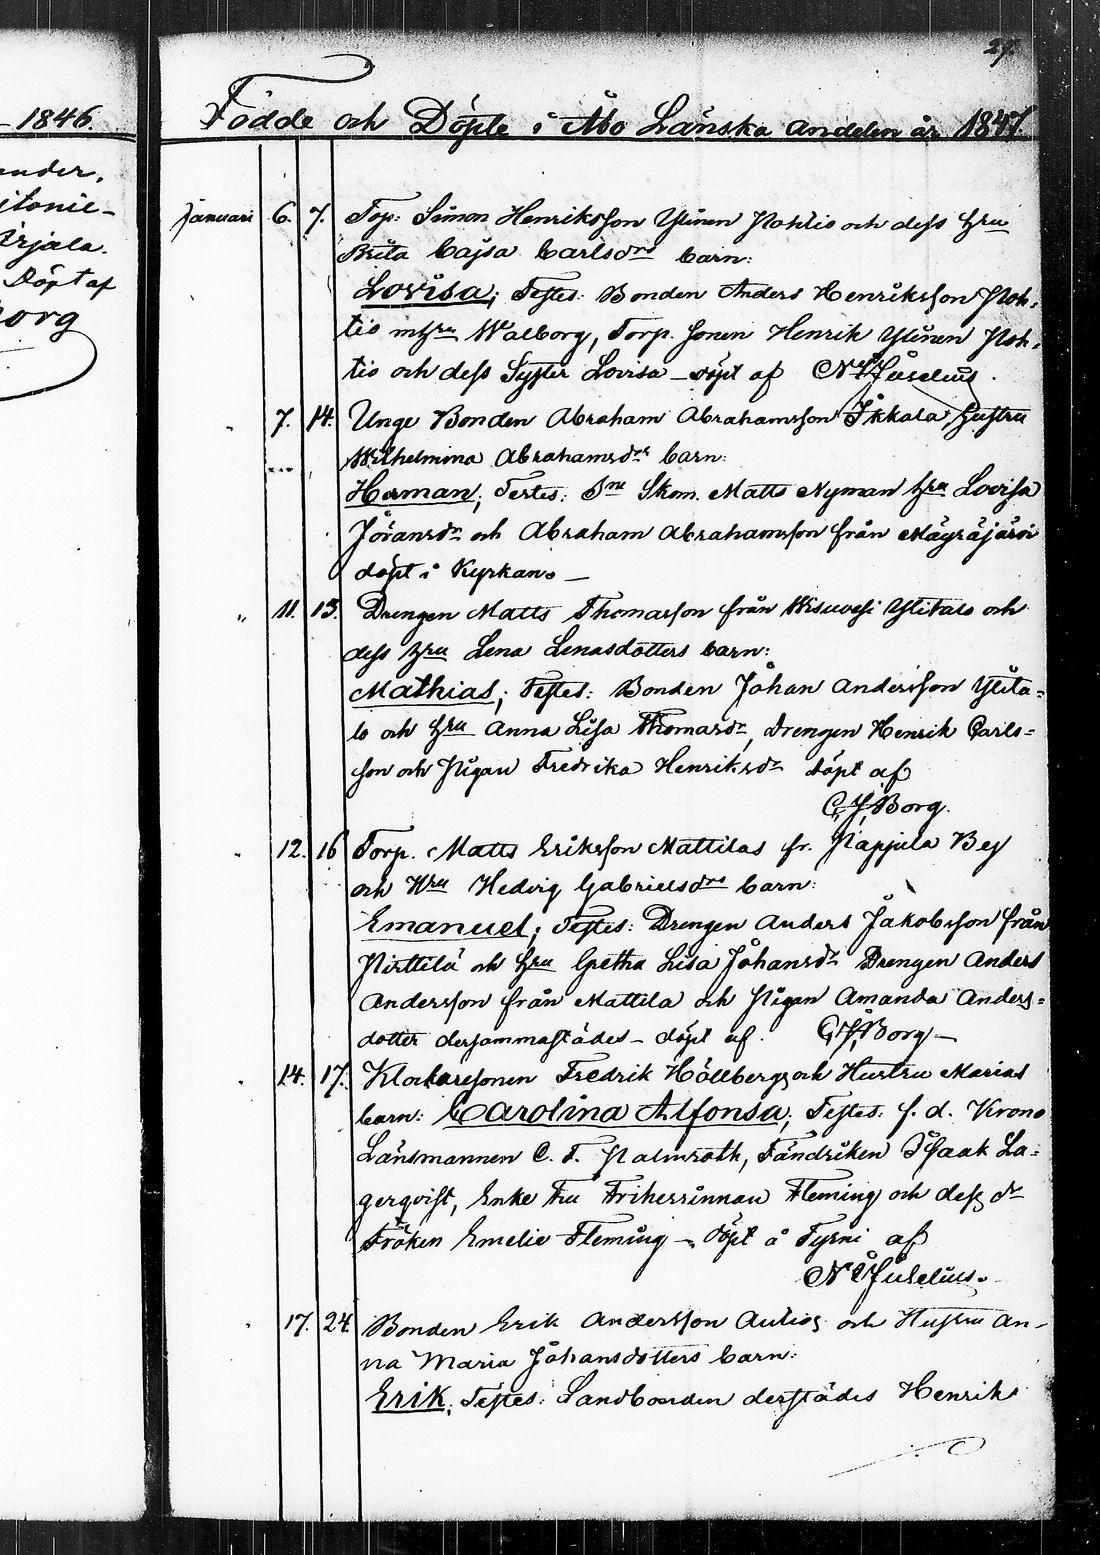 27.
1846.
Födde och Döpte i Åbo Länska andelen år 1847.
ander,
Arjala.
Döpt af
Borg
Januari 6. 7. Torp: Simon Henriksson Ylinen Nohtio och dess hru
Brita Cajsa Carlsdrs barn:
Lovisa; Testes: Bonden Anders Henriksson Noh-
tio m hru Walborg, Torp. sonen Henrik Ylinen Noh-
tio och dess Syster Lovisa – döpt af N I Juselius.
7. 14. Unge Bonden Abraham Abrahamsson Ikkala, hustru
Wilhelmina Abrahamsdrs barn:
Herman; Testes: Sne Skom. Matts Nyman hru Lovisa
Jöransdr och Abraham Abrahamsson från Mäyräjärvi
döpt i Kyrkan. –
" 11. 13. Drengen Matts Thomasson från Kisuvesi Ylitalo och
dess hru Lena Lenasdotters barn:
Mathias; Testes: Bonden Johan Andersson Ylita-
lo och hru Anna Lisa Thomasdr, Drengen Henrik Carls-
son och Pigan Fredrika Henriksdr döpt af
C J Borg.
12. 16 Torp. Matts Eriksson Mattilas fr. Nappula By
och Hru Hedvig Gabrielsdrs barn:
Emanuel; Testes: Drengen Anders Jakobsson från
Pirttilä och hru Gretha Lisa Johansdr Drengen Anders
Andersson från Mattila och Pigan Amanda Anders-
dotter dersammastädes – döpt af. C J Borg –
14. 17. Klockaresonen Fredrik Hällberg och Hustru Marias
barn: Carolina Alfonsa; Testes: f. d. Krono
Länsmannen C. F. Palmroth, Fändriken Isaak La-
gerqvist, Enke Fru Friherrinnan Fleming och dess dr
Fröken Emelie Fleming – döpt å Tyrni af
N I Juselius.
17. 24. Bonden Erik Andersson Autios och Hustru An-
na Maria Johansdotters barn:
Erik; Testes: Landbonden derstädes Henrik